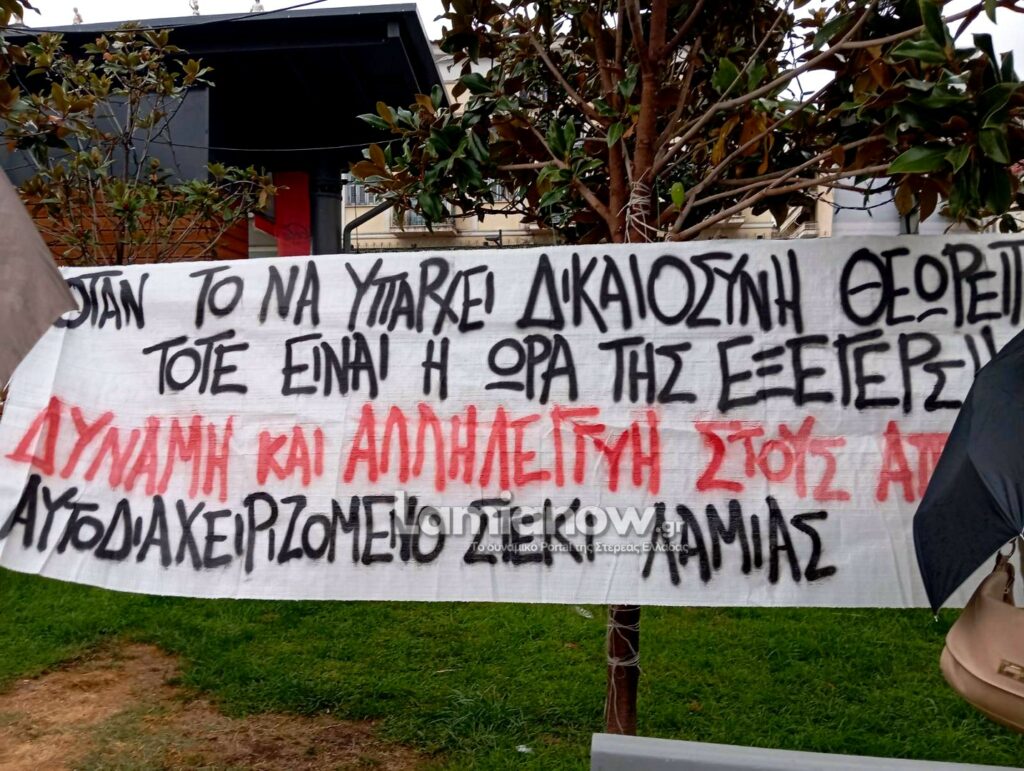 ΟΤΑΝ ΤΟ ΝΑ ΥΠΑΡΧΕΙ ΔΙΚΑΙΟΣΥΝΗ
ΤΟΤΕ ΕΙΝΑΙ Η ΩΡΑ ΤΗΣ
ΔΥΝΑΜΗ ΚΑΙ ΑΛΛΗΛΕΓΓΥΗ ΣΤΟΥΣ
ΑΥΤΟΔΙΑΧΕΙΡΙΖΟΜΕΝΟ ΣΤΕΚΙ ΛΑΜΙΑΣ
LamiaNow.gr
Το δυναμικό Portal της Στερεάς Ελλάδας